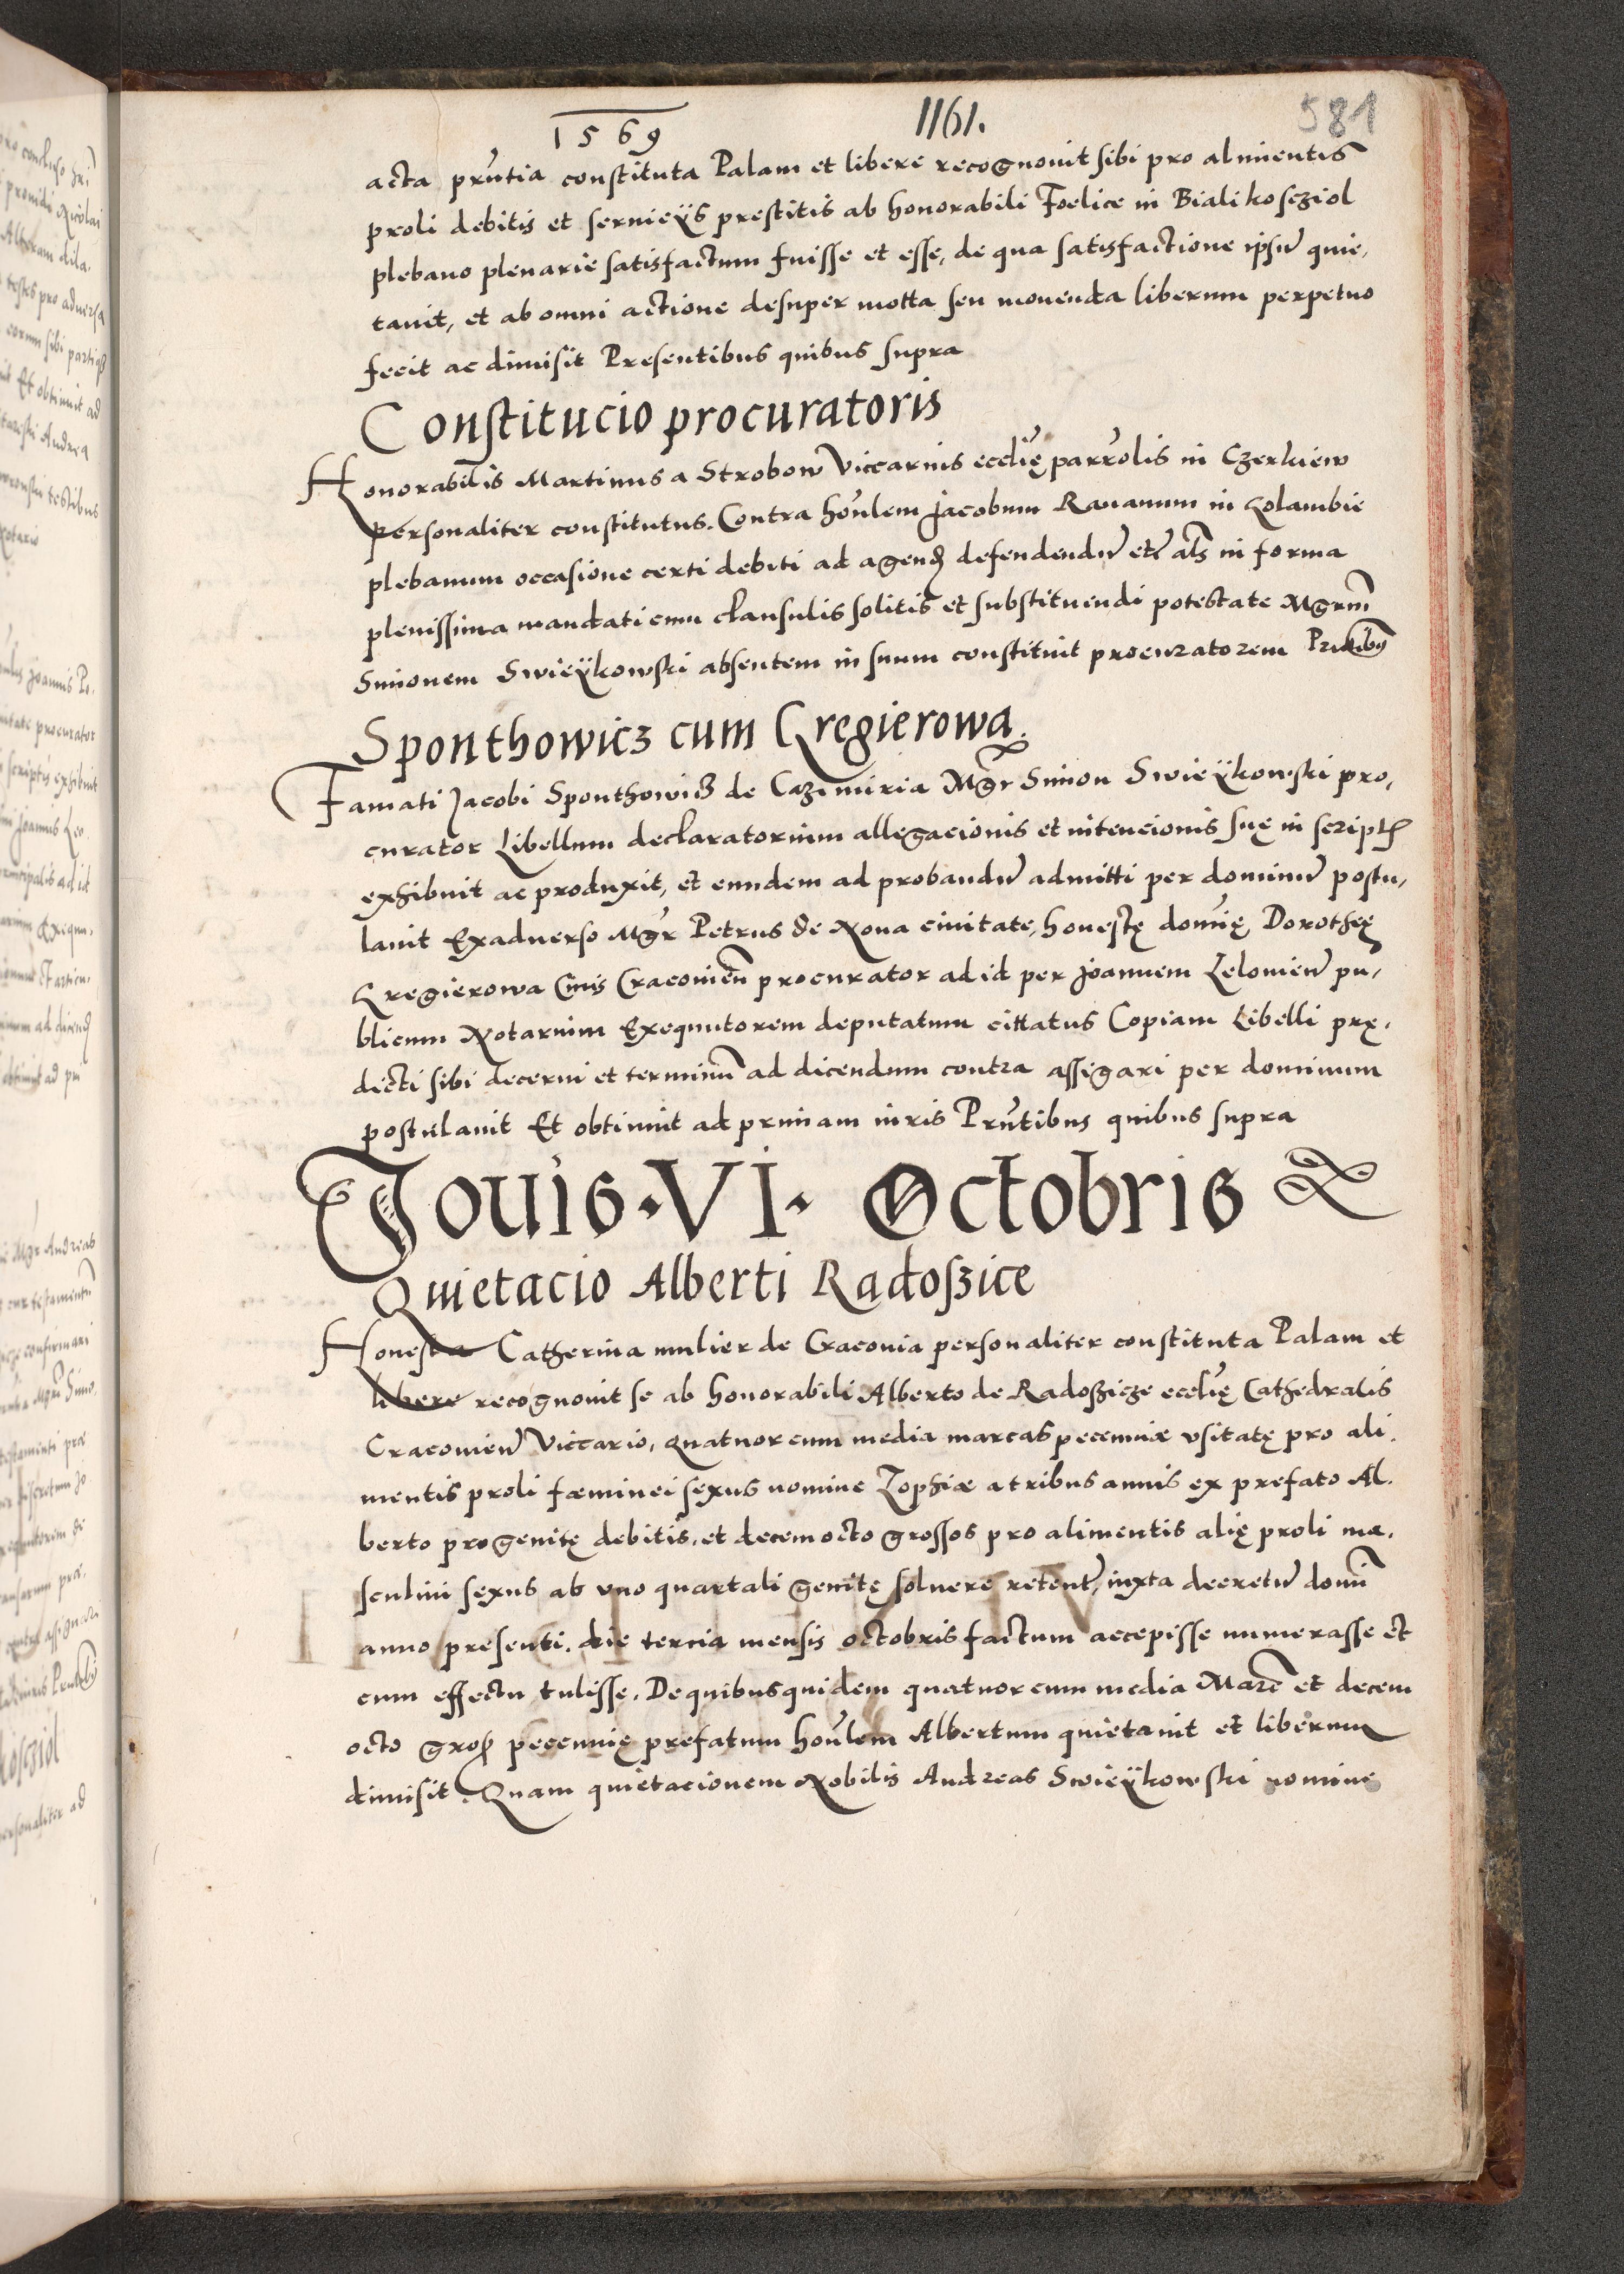 1569
1161.
581
acta prn̄tia constituta Palam et libere recognovit sibi pro alimentis
proli debitis et servicÿs prestitis ab honorabili Foelice in Biali koscziol
plebano plenarie satisfactum fuisse et esse, de qua satisfactione ipsū quie,
tavit, et ab omni actione desuper motta seu movenda liberum perpetuo
fecit ac dimisit Presentibus quibus supra
Constitucio procuratoris
Honorabilis Martinus a Strobow Viccarius ecclīę parrolis in Czerkiew
personaliter constitutus. Contra honlem Jacobum Ravanum in Golambie
plebanum occasione certi debiti ad agend defendendū etc als in forma
plenissima mandati cum clausulis solitis et substituendi potestate Mgrm
Simonem Swieÿkowski absentem in suum constituit procuratorem Prntibus
Sponthowicz cum Gregierowa.
Famati Jacobi Sponthowicz de Cazimiria Mgr Simon Swieÿkowski pro,
curator Libellum declaratorium allegacionis et intencionis suę in script
exhibuit ac produxit, et eundem ad probandū admitti per dominū postu,
lauit Exadverso Mgr Petrus de Nova civitate, honestę domię Dorotheę
Gregierowa Civis Cracovien procurator ad id per Joannem Lelovien pu,
blicum Notarium Exequutorem deputatum cittatus Copiam Libelli prę,
dicti sibi decerni et terminū ad dicendum contra assigari per dominum
postulavit Et obtinuit ad primam iuris Prn̄tibus quibus supra
Jouis · VI · Octobris
Quietacio Alberti Radoszice
Honesta Catherina mulier de Cracovia personaliter constituta Palam et
libere recognovit se ab honorabili Alberto de Radoszicze ecclīę Cathedralis
Cracovien Viccario, quatuor cum media marcas pecuniæ usitatę pro ali,
mentis proli fæminei sexus nomine Zophiæ a tribus annis ex prefato Al,
berto progenitę debitis, et decem octo grossos pro alimentis alię proli ma,
sculini sexus ab uno quartali genitę solvere retent, iuxta decretū domī
anno presenti, die tercia mensis octobris factum accepisse numerasse et
cum effectu tulisse. De quibus quidem quatuor cum media Marc et decem
octo gros pecunię prefatum honlem Albertum quietavit et liberum
dimisit. Quam quietacionem Nobilis Andreas Swieÿkowski nomine